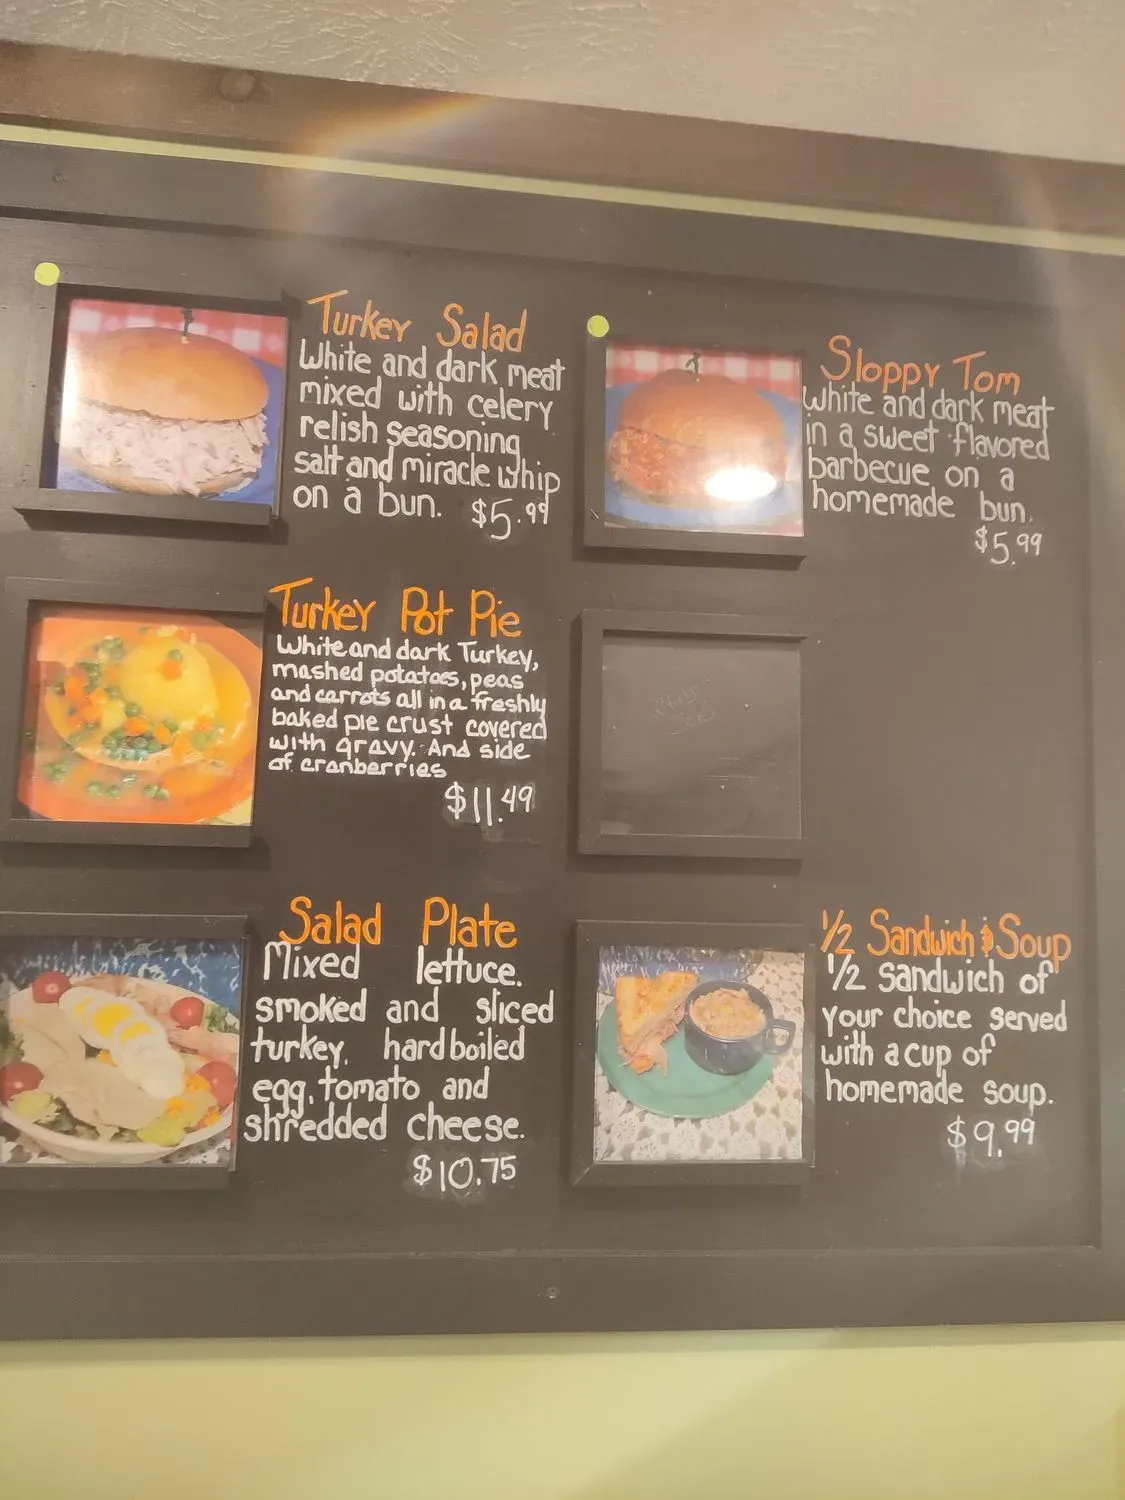 Turkey Salad
White and dark meat
mixed with celery
relish seasoning
salt and miracle whip
on a bun. $5.99
Sloppy Tom
White and dark meat
in a sweet flavored
barbecue on a
homemade bun.
$5.99
Turkey Pot Pie
White and dark Turkey,
mashed potatoes, peas
and carrots all in a freshly
baked pie crust covered
with gravy. And side
of cranberries
$11.49
Salad Plate
Mixed lettuce.
smoked and sliced
turkey, hardboiled
egg, tomato and
shredded cheese.
$10.75
1/2 Sandwich & Soup
1/2 sandwich of
your choice served
with a cup of
homemade soup.
$9.99